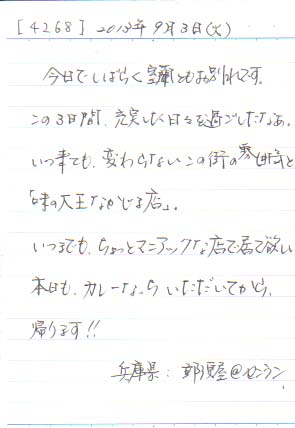 [4268] 2013年9月3日(火)
今日でしばらく室蘭ともお別れです。
この3日間、充実した日々を過ごしたなぁ。
いつ来ても、変わらないこの街の雰囲気と
「味の大王なかじま店」。
いつまでも、ちょっとマニアックな店で居て欲しい
本日も、カレーラーいただいてから、
帰ります!!
兵庫県: